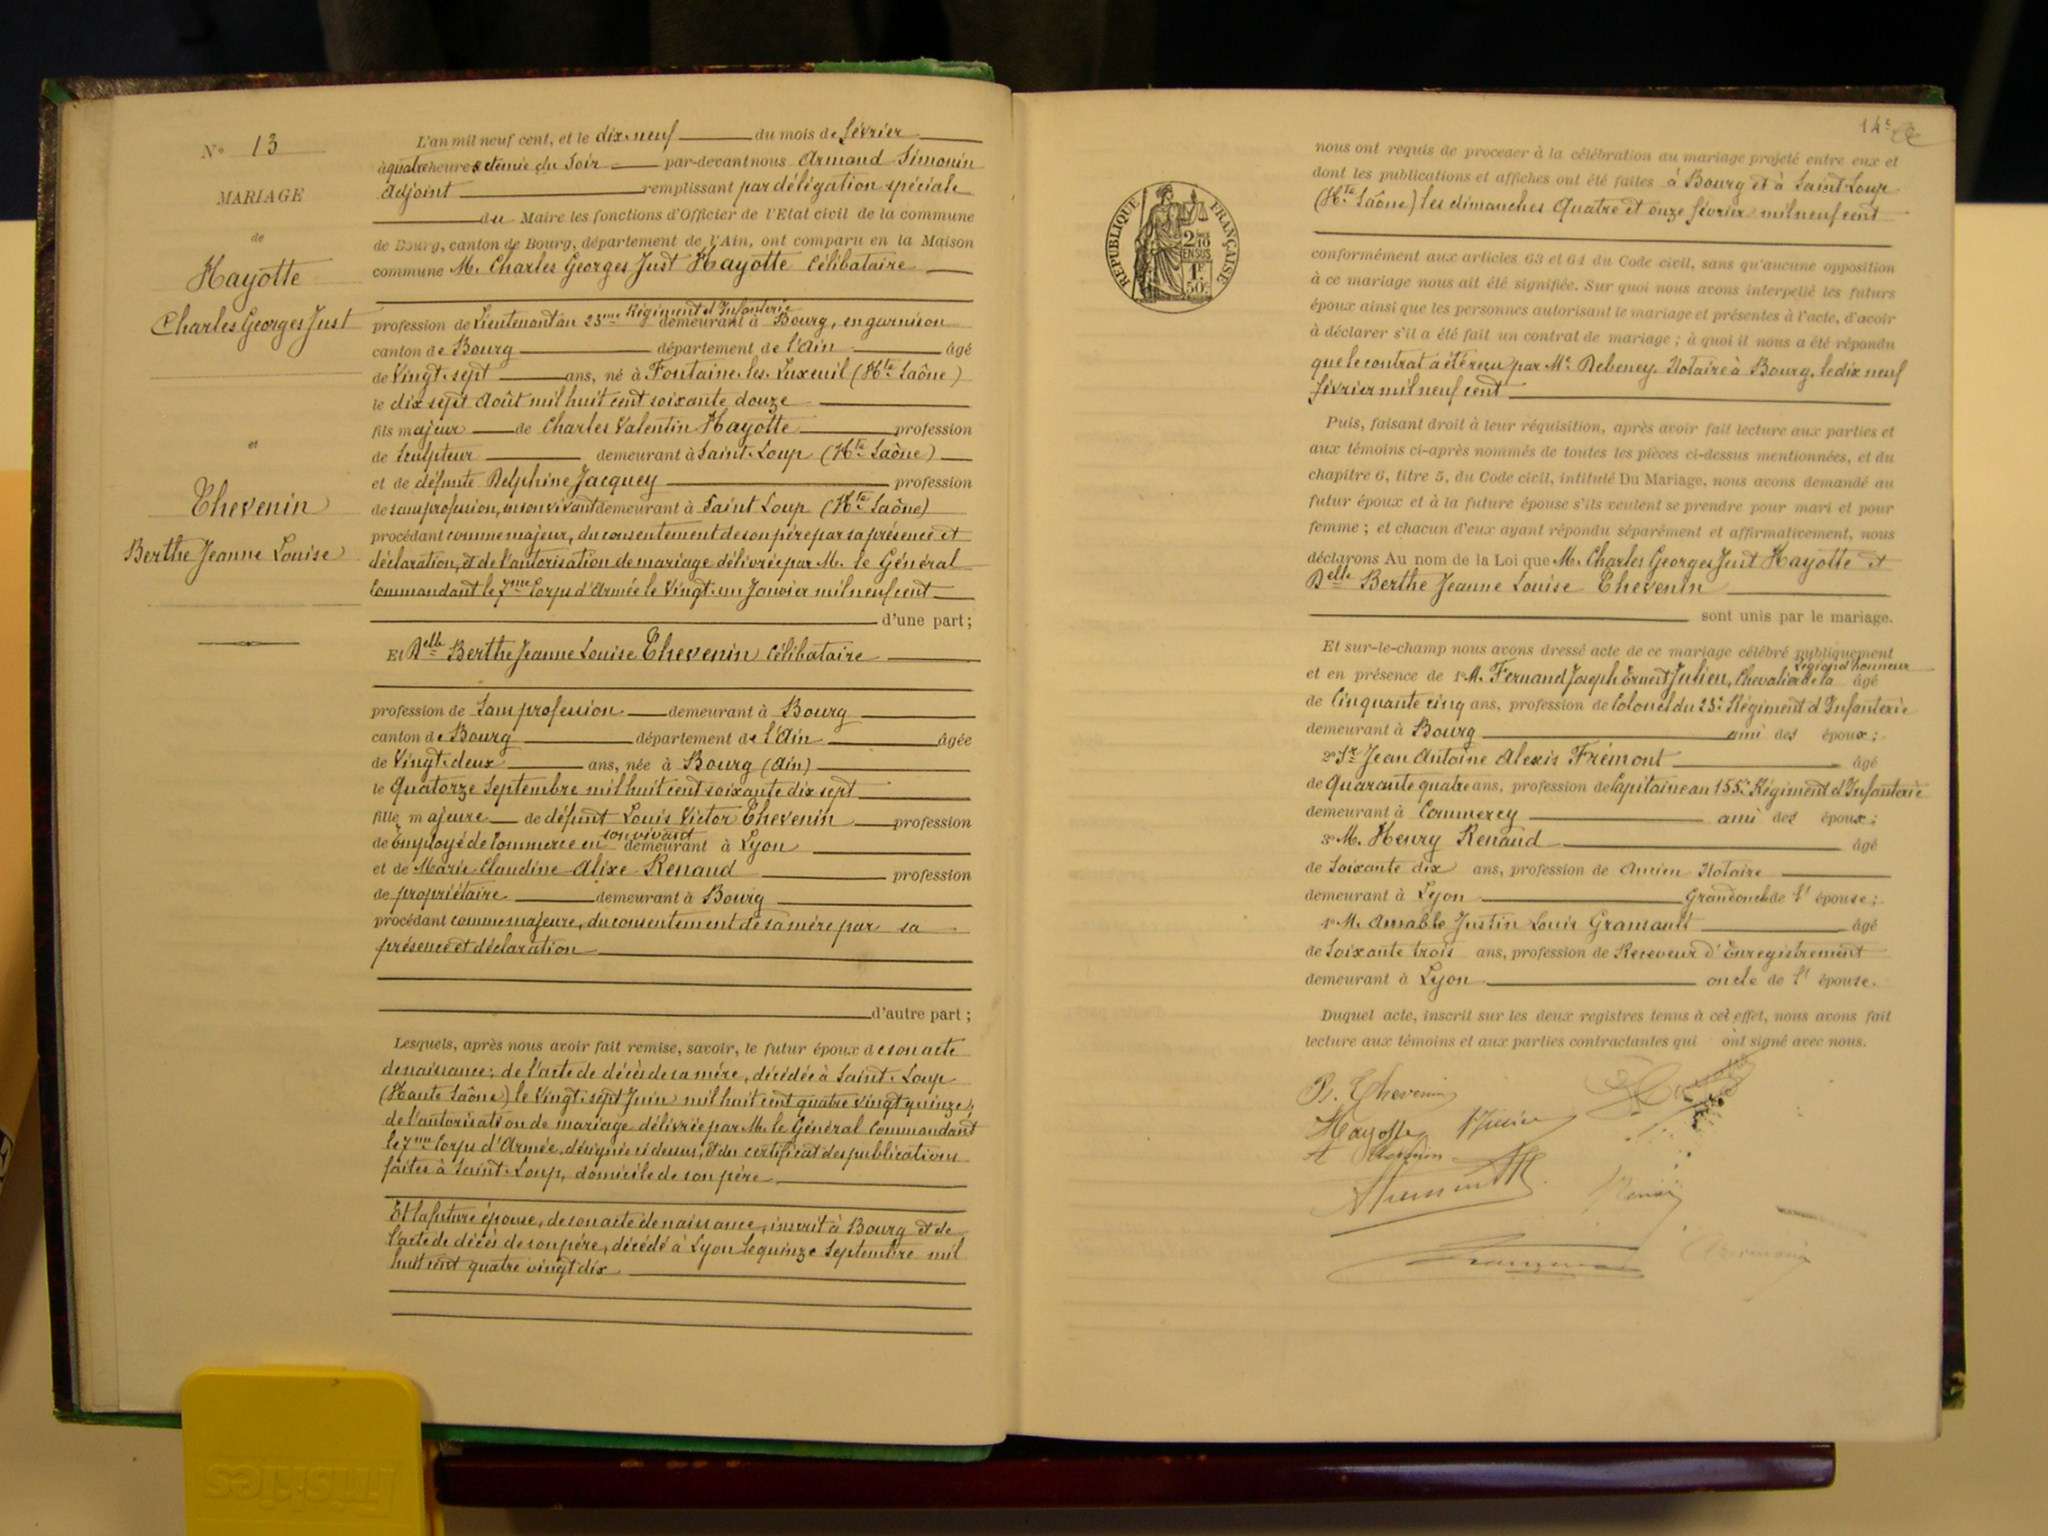 N° 13
MARIAGE
de
Hayotte
Charles Georges Just
et
Thevenin
Berthe Jeanne Louise
L'an mil neuf cent, et le dix-neuf du mois de février
à quatre heures & demie du soir par-devant nous Armand Simonin
adjoint remplissant par délégation spéciale
du Maire les fonctions d'Officier de l'Etat civil de la commune
de Bourg, canton de Bourg, département de l'Ain, ont comparu en la Maison
commune M. Charles Georges Just Hayotte célibataire
Régiment d'Infanterie
profession de Lieutenant au 23me demeurant à Bourg, en garnison
canton de Bourg département de l'Ain âgé
de Vingt-sept ans, né à Fontaine-les-Luxeuil (Hte Saône)
le dix sept Août mil huit cent soixante douze
fils majeur de Charles Valentin Hayotte profession
de Sculpteur demeurant à Saint-Loup (Hte Saône)
et de défunte Delphine Jacquey profession
de sans profession, en son vivant demeurant à Saint Loup (Hte Saône)
procédant comme majeur, du consentement de son père par sa présence et
déclaration, et de l'autorisation de mariage délivrée par M. le Général
Commandant le 7me Corps d'Armée le Vingt-un Janvier mil neuf cent
d'une part ;
Et Delle Berthe Jeanne Louise Thevenin célibataire
profession de Sans profession demeurant à Bourg
canton de Bourg département de l'Ain âgée
de Vingt-deux ans, née à Bourg (Ain)
le Quatorze Septembre mil huit cent soixante dix sept
fille majeure de défunt Louis Victor Thevenin profession
son vivant
de Employé de Commerce en demeurant à Lyon
et de Marie Claudine Alixe Renaud profession
de propriétaire demeurant à Bourg
procédant comme majeure, du consentement de sa mère par sa
présence et déclaration
d'autre part ;
Lesquels, après nous avoir fait remise, savoir, le futur époux de son acte
de naissance ; de l'acte de décès de sa mère, décédée à Saint-Loup
(Haute Saône) le Vingt-sept Juin mil huit cent quatre vingt quinze ;
de l'autorisation de mariage délivrée par M. le Général Commandant
le 7me Corps d'Armée, désignée ci dessus, & du certificat des publications
faites à Saint-Loup, domicile de son père
Et la future épouse, de son acte de naissance, inscrit à Bourg et de
l'acte de décès de son père, décédé à Lyon le quinze Septembre mil
huit cent quatre vingt dix
REPUBLIQUE FRANÇAISE
2/10
EN SUS
1F
50c
nous ont requis de procéder à la célébration du mariage projeté entre eux et
dont les publications et affiches ont été faites à Bourg et à Saint-Loup
(Hte Saône) les dimanches Quatre et onze février mil neuf cent
conformément aux articles 63 et 64 du Code civil, sans qu'aucune opposition
à ce mariage nous ait été signifiée. Sur quoi nous avons interpellé les futurs
époux ainsi que les personnes autorisant le mariage et présentes à l'acte, d'avoir
à déclarer s'il a été fait un contrat de mariage ; à quoi il nous a été répondu
que le contrat a été reçu par Me Debeney, Notaire à Bourg, le dix neuf
février mil neuf cent
Puis, faisant droit à leur réquisition, après avoir fait lecture aux parties et
aux témoins ci-après nommés de toutes les pièces ci-dessus mentionnées, et du
chapitre 6, titre 5, du Code civil, intitulé Du Mariage, nous avons demandé au
futur époux et à la future épouse s'ils veulent se prendre pour mari et pour
femme ; et chacun d'eux ayant répondu séparément et affirmativement, nous
déclarons Au nom de la Loi que M. Charles Georges Just Hayotte et
Delle Berthe Jeanne Louise Thevenin
sont unis par le mariage.
Et sur-le-champ nous avons dressé acte de ce mariage célébré publiquement
Légion d'honneur
et en présence de 1° M. Fernand Joseph Ernest Julien, Chevalier de la âgé
de Cinquante cinq ans, profession de Colonel du 23e Régiment d'Infanterie
demeurant à Bourg ami des époux ;
2° Sr Jean Antoine Alexis Frémont âgé
de Quarante quatre ans, profession de Capitaine au 155e Régiment d'Infanterie
demeurant à Commercy ami des époux ;
3° M. Henry Renaud âgé
de Soixante dix ans, profession de Ancien Notaire
demeurant à Lyon Grand oncle de l' épouse ;
4° M. Amable Justin Louis Gramault âgé
de Soixante trois ans, profession de Receveur d'Enregistrement
demeurant à Lyon oncle de l' épouse.
Duquel acte, inscrit sur les deux registres tenus à cet effet, nous avons fait
lecture aux témoins et aux parties contractantes qui ont signé avec nous.
B. Thevenin
Hayotte